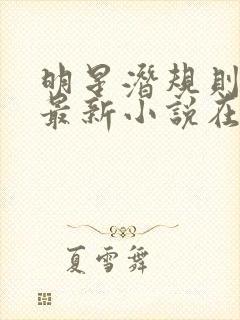 明星潜规则
最新小说在
夏雪舞